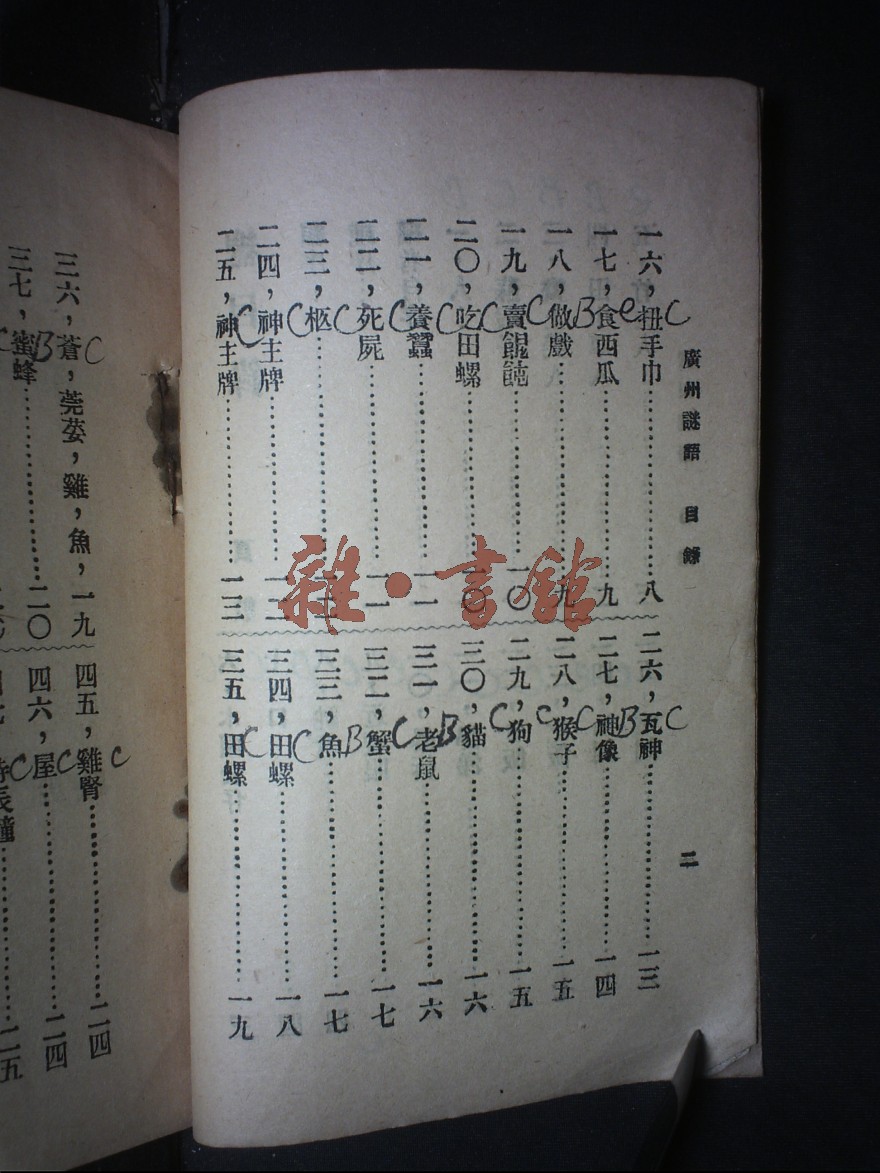 廣州謎語 目錄
二
一六，扭手巾……八
一七，食西瓜……九
一八，做戲……九
一九，賣餛飩……一〇
二〇，吃田螺……一〇
二一，養蠶……一一
二二，死屍……一一
二三，柩……一二
二四，神主牌……一二
二五，神主牌……一三
二六，瓦神……一三
二七，神像……一四
二八，猴子……一五
二九，狗……一五
三〇，貓……一六
三一，老鼠……一六
三二，蟹……一七
三三，魚……一七
三四，田螺……一八
三五，田螺……一九
三六，蒼，莞荽，雞，魚，一九
三七，蜜蜂……二〇
四五，雞腎……二四
四六，屋……二四
二五
雜·書館